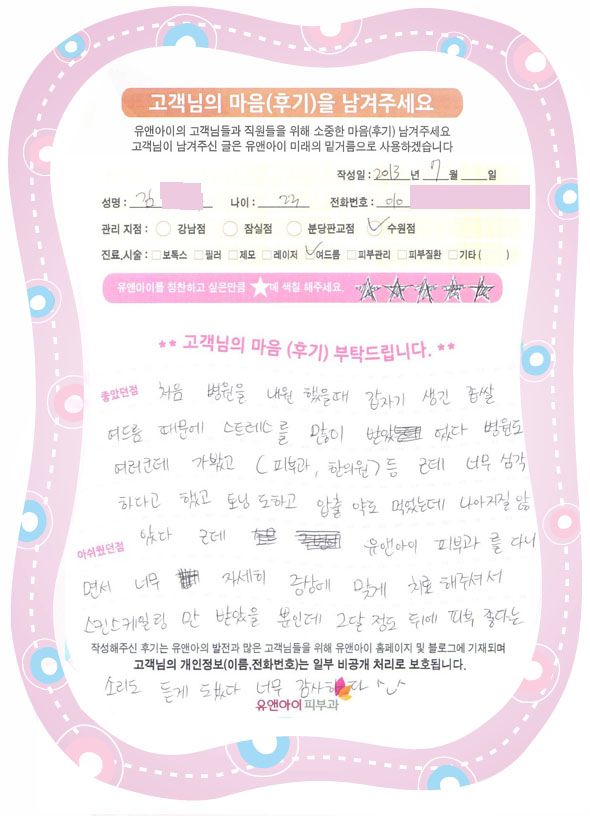 고객님의 마음(후기)을 남겨주세요
유앤아이의 고객님들과 직원들을 위해 소중한 마음(후기) 남겨주세요
고객님이 남겨주신 글은 유앤아이 미래의 밑거름으로 사용하겠습니다
작성일 : 2013 년 7 월 일
성명 : 김 나이 : 23 전화번호 : 010
관리 지점 : 강남점 잠실점 분당판교점 수원점
진료,시술 : 보톡스 필러 제모 레이저 여드름 피부관리 피부질환 기타 ( )
유앤아이를 칭찬하고 싶은만큼 ★에 색칠 해주세요.
** 고객님의 마음 (후기) 부탁드립니다. **
좋았던점 처음 병원을 내원 했을때 갑자기 생긴 좁쌀
여드름 때문에 스트레스를 많이 받았었다 병원도
여러군데 가봤고 (피부과, 한의원) 등 근데 너무 심각
하다고 했고 토닝도하고 압출 약도 먹었는데 나아지질 않
았다 근데 유앤아이 피부과를 다니
아쉬웠던점
면서 너무 자세히 증상에 맞게 치료해주셔서
스킨스케일링 만 받았을 뿐인데 2달 정도 뒤에 피부 좋다는
작성해주신 후기는 유앤아의 발전과 많은 고객님들을 위해 유앤아이 홈페이지 및 블로그에 기재되며
고객님의 개인정보(이름,전화번호)는 일부 비공개 처리로 보호됩니다.
소리도 듣게 되었다 너무 감사하다 ^^
유앤아이피부과